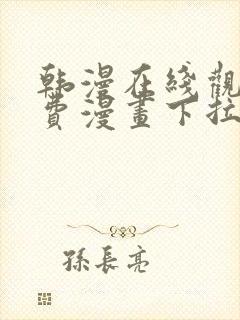 韩漫在线觀
費漫畫下拉
孫長亮